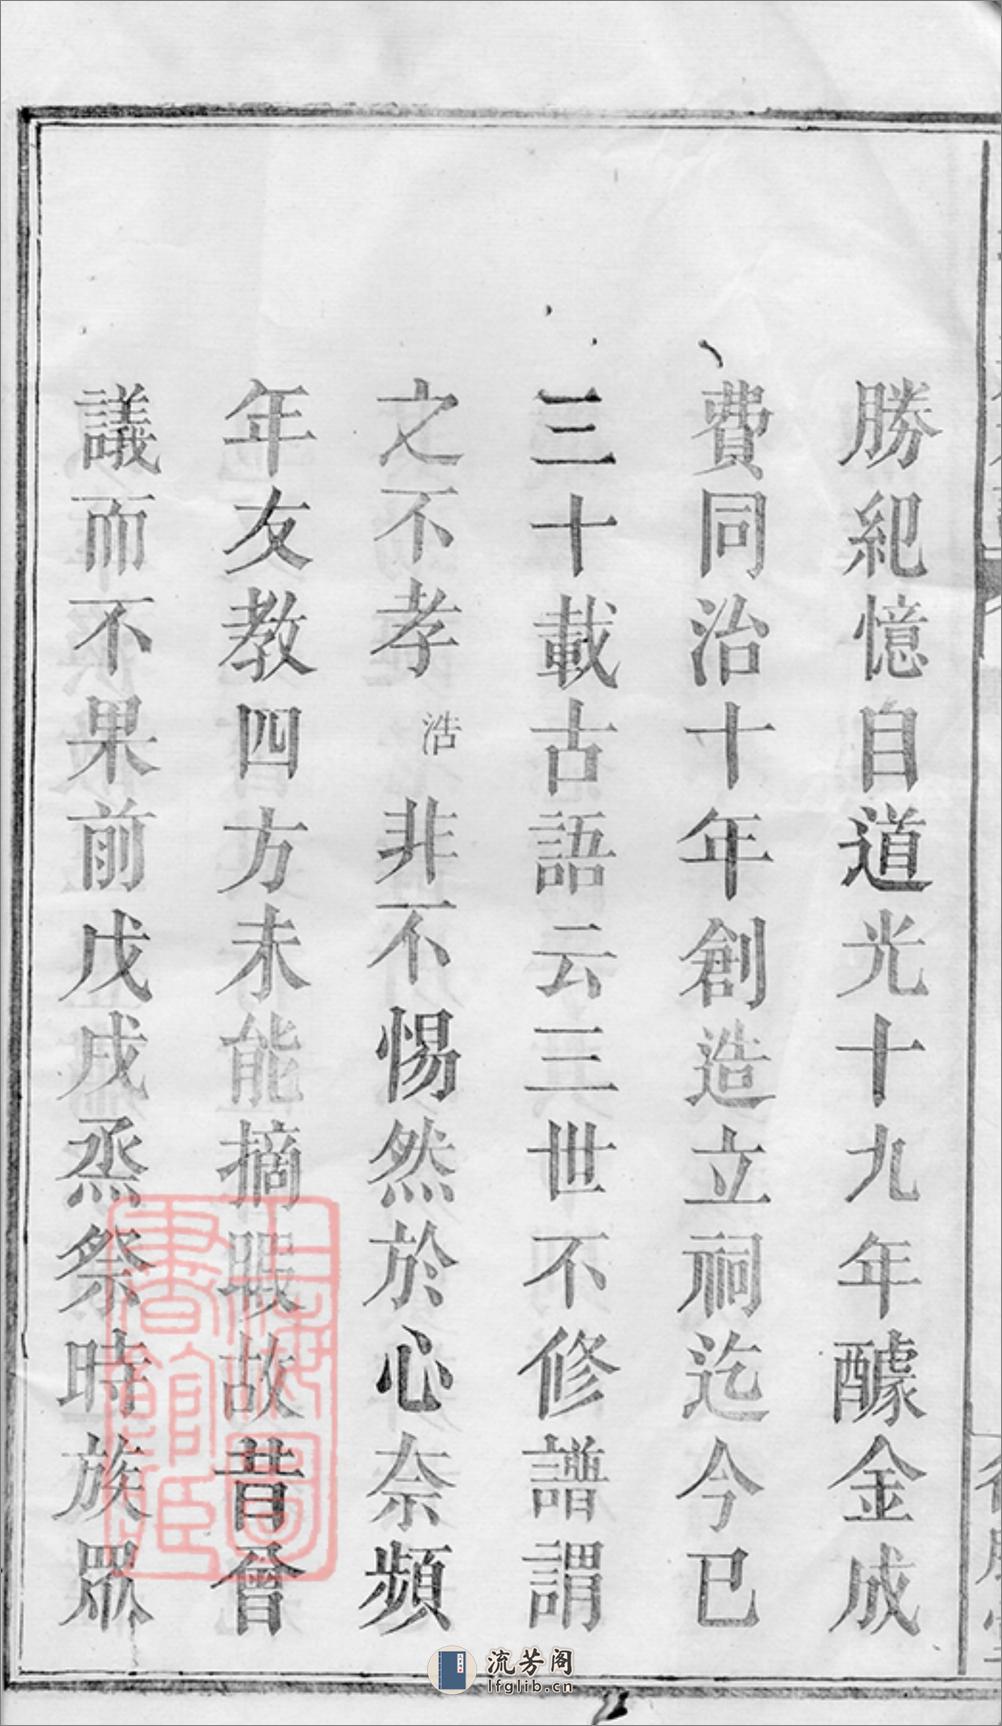 勝紀憶自道光十九年醵金成
費同治十年創造立祠迄今已
三十載古語云三世不修譜謂
之不孝浩非不惕然於心奈頻
年友教四方未能摘暇故昔會
議而不果前戊戌烝祭時族眾
上海圖書館藏
流芳阁
lfglib.cn